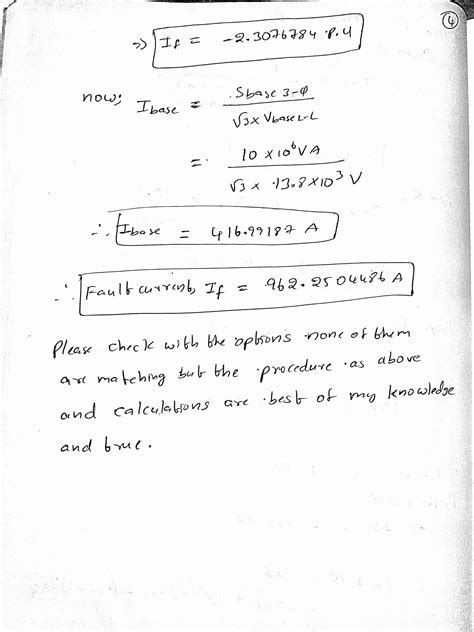 ④
=> If = -2.3076784 P.U
now; Ibase = Sbase 3-φ / √3 x VbaseL-L
= 10 x 10⁶ VA / √3 x 13.8 x 10³ V
∴ Ibase = 416.99187 A
∴ Fault current, If = 962.2504486 A
Please check with the options none of them
are matching but the procedure as above
and calculations are best of my knowledge
and true.